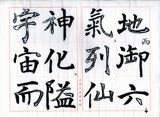 地御六
氣列仙
神化隘
宇宙而